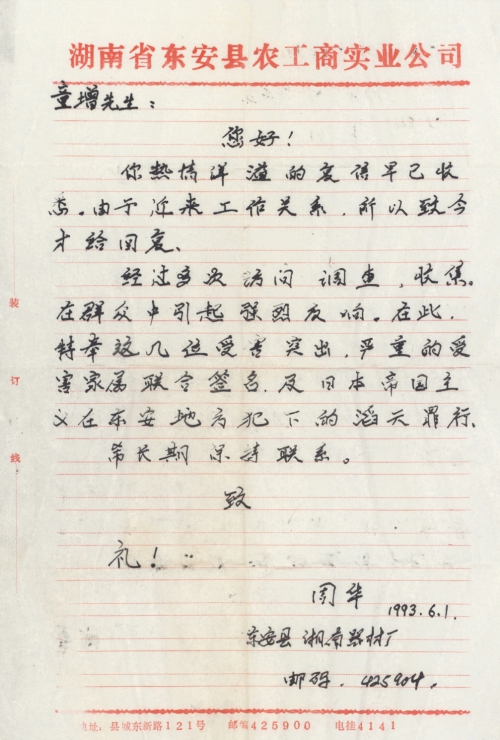 湖南省东安县农工商实业公司
童增先生：
您好！
你热情洋溢的衷语早已收
悉。由于近来工作关系，所以致今
才给回衷、
经过多次访问 调查，收集。
在群众中引起强烈反响。在此，
特举这几位受害突出，严重的受
害家属联合签名，及日本帝国主
义在东安地方犯下的滔天罪行、
常长期保持联系。
致
礼！
周华 1993.6.1.
东安县湘南器材厂
邮码：425904.
装
订
线
地址：县城东新路121号 邮编425900 电挂4141